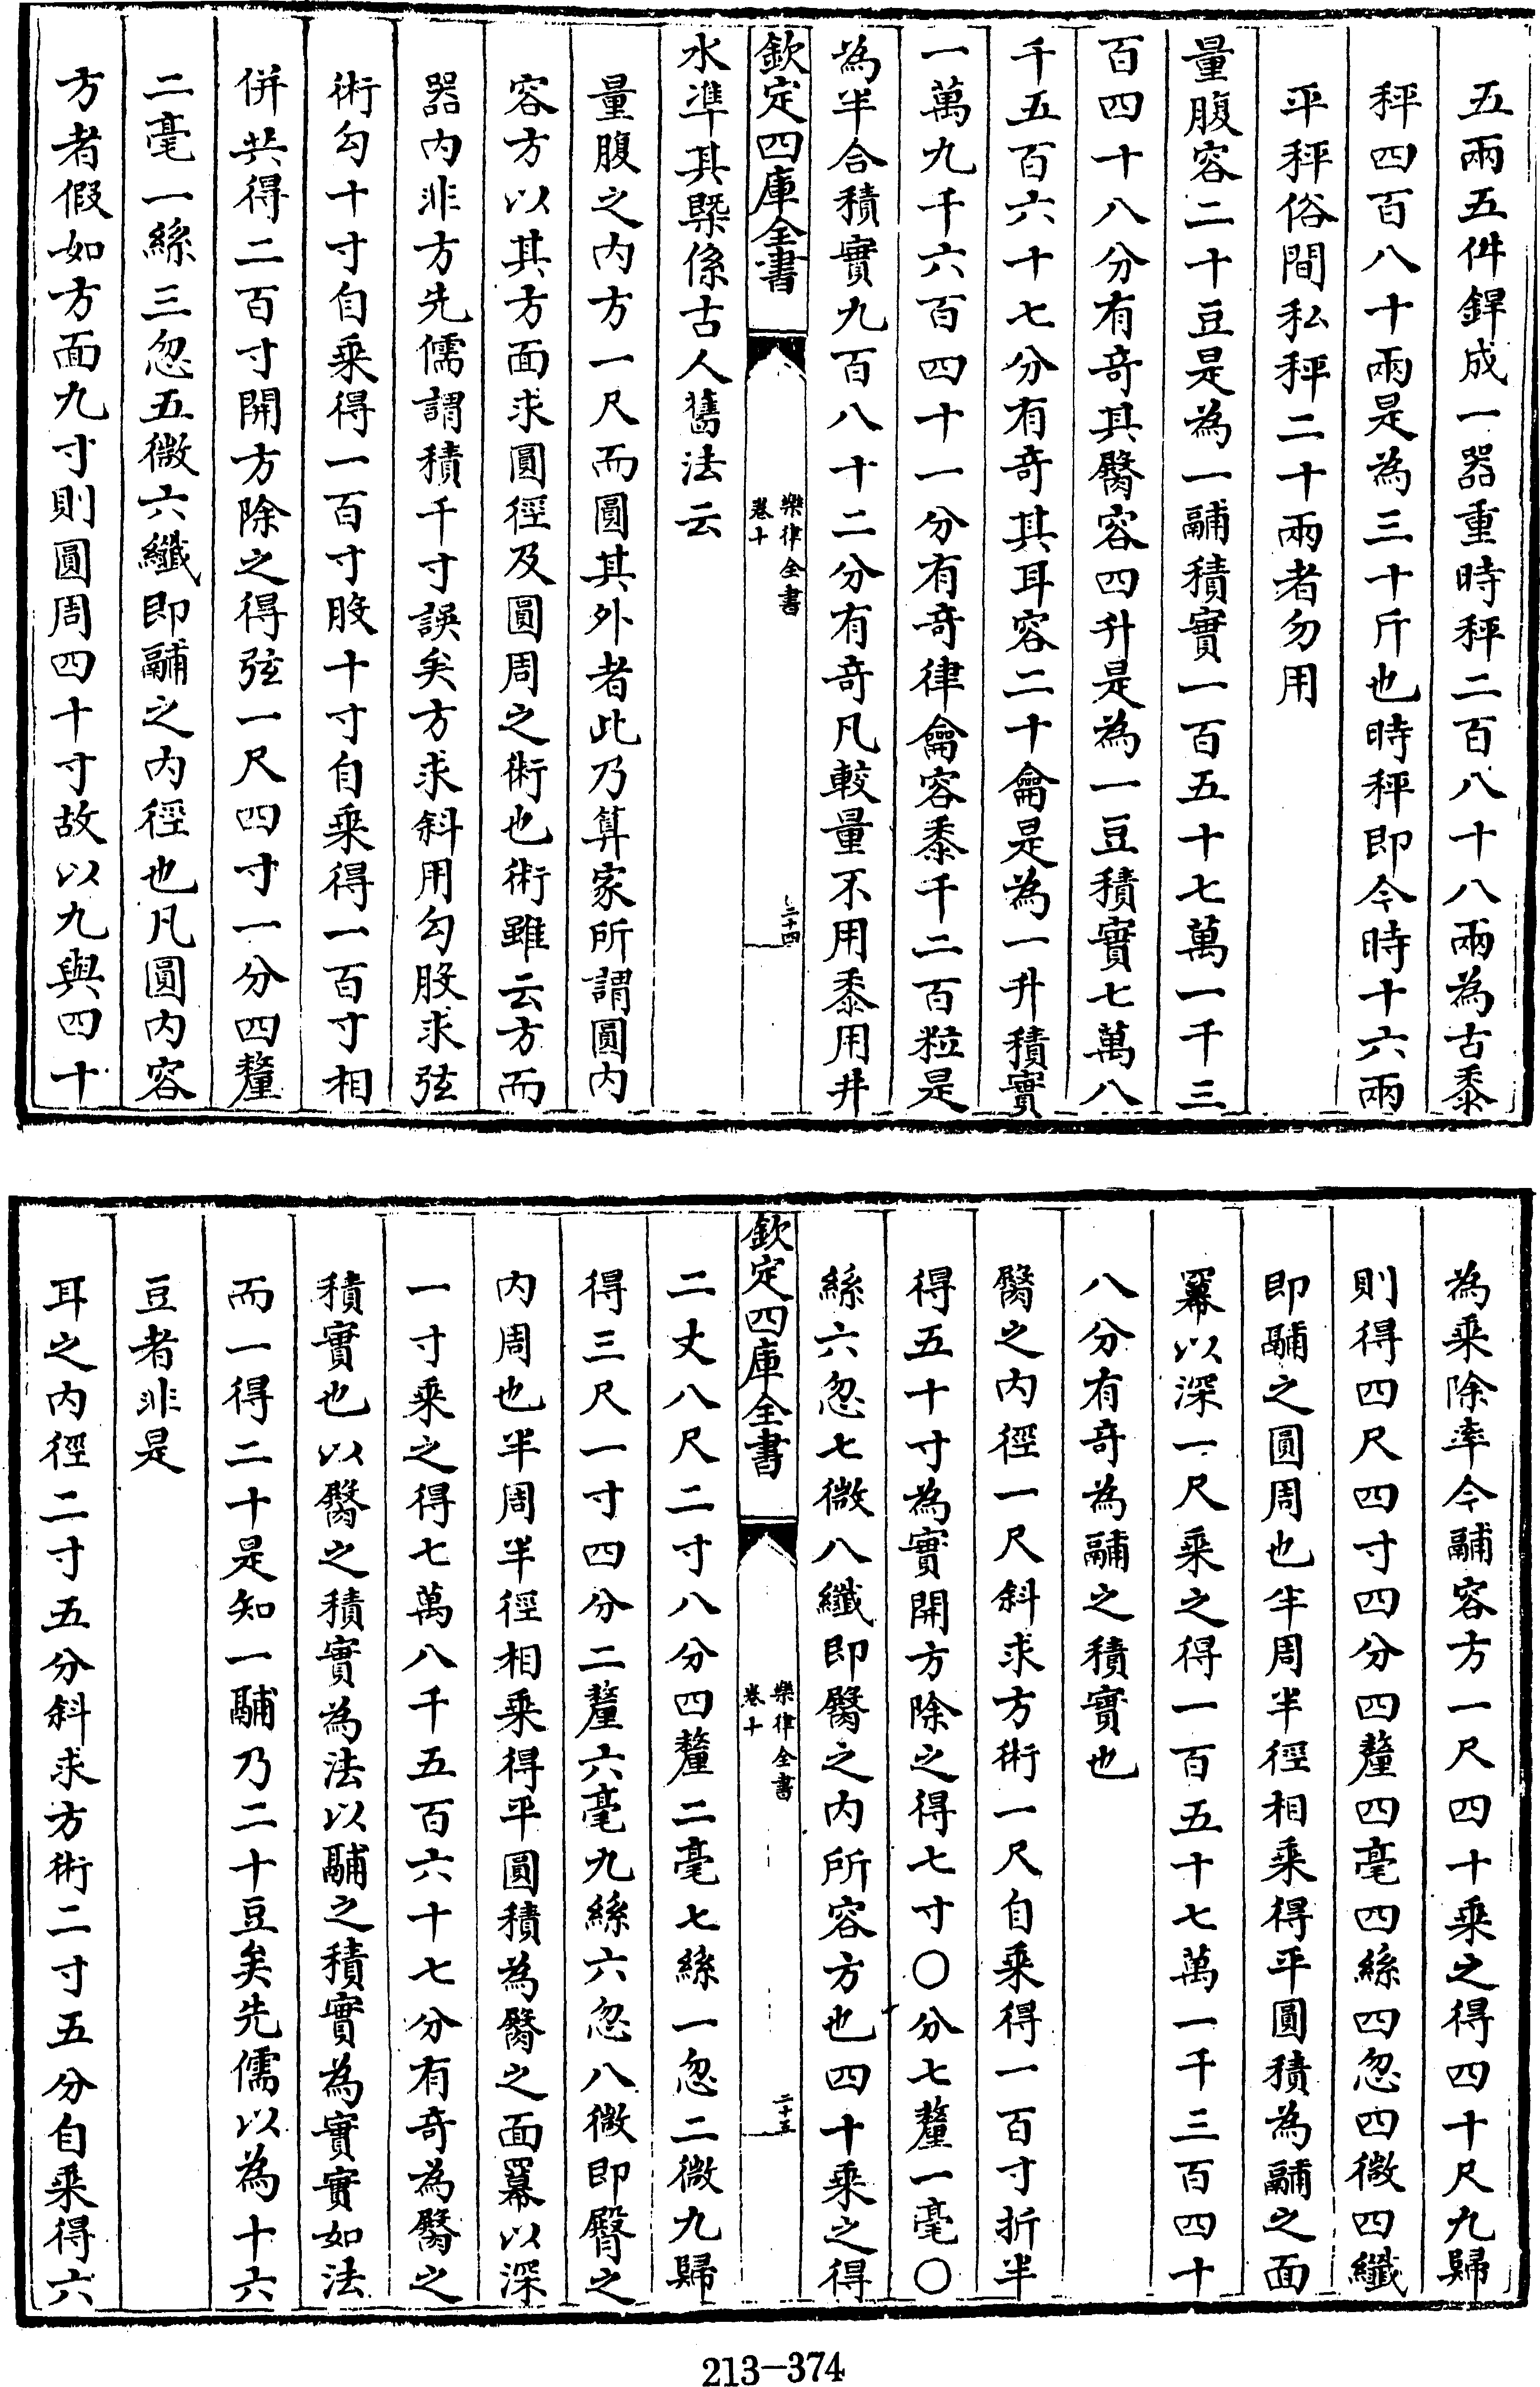 五兩五件銲成一器重時秤二百八十八兩為古黍
秤四百八十兩是為三十斤也時秤即今時十六兩
平秤俗間私秤二十兩者勿用
量腹容二十豆是為一鬴積實一百五十七萬一千三
百四十八分有奇其臋容四升是為一豆積實七萬八
千五百六十七分有奇其耳容二十龠是為一升積實
一萬九千六百四十一分有奇律龠容黍千二百粒是
為半合積實九百八十二分有奇凡較量不用黍用井
欽定四庫全書
樂律全書
卷十
二十四
水準其槩係古人舊法云
量腹之内方一尺而圓其外者此乃算家所謂圓内
容方以其方面求圓徑及圓周之術也術雖云方而
器内非方先儒謂積千寸誤矣方求斜用勾股求弦
術勾十寸自乘得一百寸股十寸自乘得一百寸相
併共得二百寸開方除之得弦一尺四寸一分四釐
二毫一絲三忽五微六纖即鬴之内徑也凡圓内容
方者假如方面九寸則圓周四十寸故以九與四十
為乘除率今鬴容方一尺四十乘之得四十尺九歸
則得四尺四寸四分四釐四毫四絲四忽四微四纖
即鬴之圓周也半周半徑相乘得平圓積為鬴之面
冪以深一尺乘之得一百五十七萬一千三百四十
八分有奇為鬴之積實也
臋之内徑一尺斜求方術一尺自乘得一百寸折半
得五十寸為實開方除之得七寸〇分七釐一毫〇
絲六忽七微八纖即臋之内所容方也四十乘之得
欽定四庫全書
樂律全書
卷十
二十五
二丈八尺二寸八分四釐二毫七絲一忽二微九歸
得三尺一寸四分二釐六毫九絲六忽八微即臀之
内周也半周半徑相乘得平圓積為臋之面冪以深
一寸乘之得七萬八千五百六十七分有奇為臋之
積實也以臋之積實為法以鬴之積實為實實如法
而一得二十是知一鬴乃二十豆矣先儒以為十六
豆者非是
耳之内徑二寸五分斜求方術二寸五分自乘得六
213-374